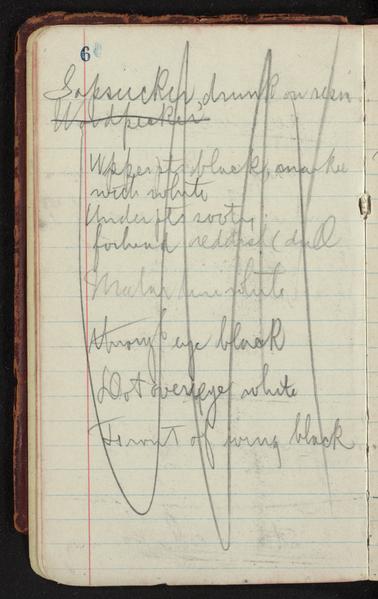 68
Sapsucker, drunk on resin
Woodpecker
Upper pts black, marked
with white
Under pts sooty
forhead reddish (dull
Malar line white
through eye black
Dot over eye white
Front of wing black